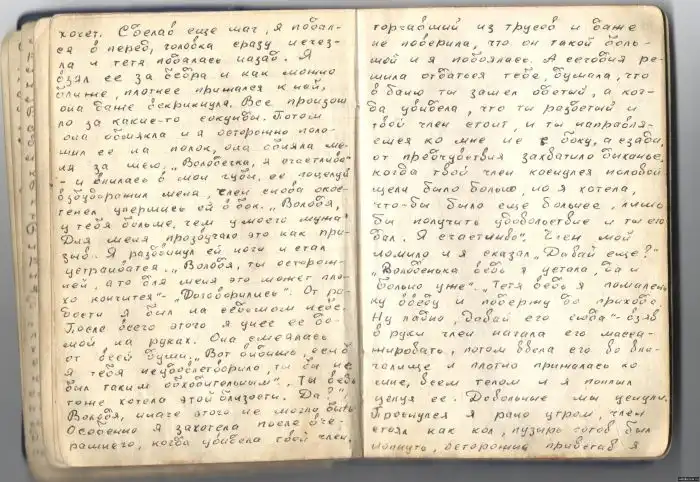 хочет. Сделав еще шаг, я подал-
ся вперед, головка сразу исчез-
ла и тетя подалась назад. Я
взял ее за бедра и как можно
ближе, плотнее прижался к ней,
она даже вскрикнула. Все произош
ло за какие-то секунды. Потом
она обмякла и я осторожно поло-
жил ее на полок, она обняла ме-
ня за шею. „Володечка, я счастлива"
- и впилась в мои губы, ее поцелуй
взбудоражил меня, член снова окос-
тенел упершись ей в бок. „Володя,
у тебя больше, чем у моего мужа"
Для меня прозвучало это как при-
зыв. Я раздвинул ей ноги и стал
пристраиватся. „Володя, ты осторож-
ней, а то для меня это может пло-
хо кончится" - „Договорились". От ра-
дости я был на седьмом небе.
После всего этого я унес ее до-
мой на руках. Она смеялась
от всей души. „Вот видишь, если б
я тебя неудовлетворила, ты бы не
был таким обходительным". „Ты ведь
тоже хотела этой близости. Да?"
Володя, иначе этого не могло быть
Особенно я захотела после вче-
рашнего, когда увидела твой член,
торчавший из трусов и даже
не поверила, что он такой боль-
шой и я побоялась. А сегодня ре-
шила отдаться тебе, думала, что
в баню ты зашел одетый, а ког-
да увидела, что ты раздетый и
твой член стоит, и ты направля-
ешся ко мне не с боку, а сзади,
от предчувствия захватило дыханье,
когда твой член коснулся половой
щели было больно, но я хотела,
что-бы было еще больнее, лишь
бы получить удовольствие и ты его
дал. Я счастлива". Член мой
ломило и я сказал „Давай еще?"
„Володенька ведь я устала, да и
больно уже". „Тетя ведь я помалень
ку войду и подержу до прихода.
Ну ладно, давай его сюда" - взяв
в руки член начала его масса-
жировать, потом ввела его во вла-
галище и плотно прижалась ко
мне, всем телом и я поплыл
целуя ее. Довольные мы уснули.
Проснулся я рано утром, член
стоял как кол, пузырь готов был
лопнуть, осторожно привстав я